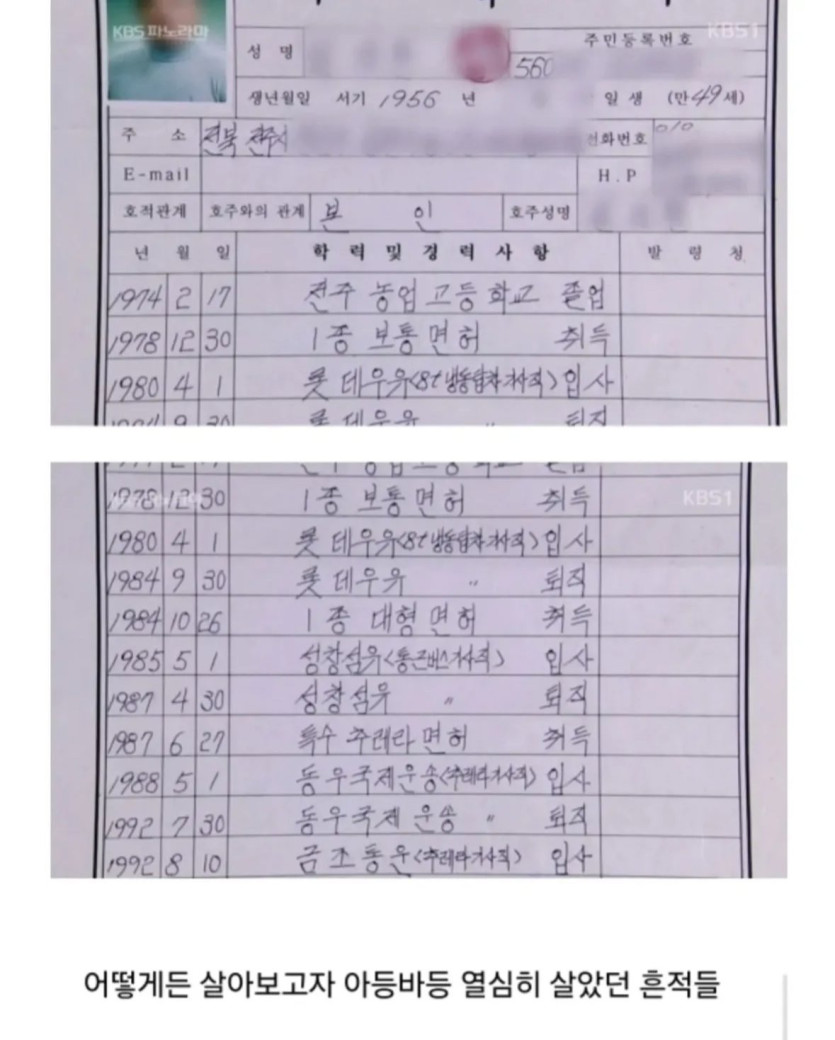 KBS 파노라마
KBS1
성 명
주민등록번호
560
생년월일 서기 1956 년 일생 (만 49 세)
주 소 전북 전주시
전화번호 010
E-mail
H.P
호적관계 호주와의 관계 본 인 호주성명
년 월 일 학 력 및 경 력 사 항 발 령 청
1974 2 17 전주 농업 고등 학교 졸업
1978 12 30 1종 보통 면허 취득
1980 4 1 롯데우유(8t 냉동탑차기사직) 입사
1984 9 30 롯데우유 〃 퇴직
1978 12 30 1종 보통 면허 취득
KBS1
1980 4 1 롯데우유(8t 냉동탑차기사직) 입사
1984 9 30 롯데우유 〃 퇴직
1984 10 26 1종 대형 면허 취득
1985 5 1 성창섬유(통근버스기사직) 입사
1987 4 30 성창섬유 〃 퇴직
1987 6 27 특수 추레라 면허 취득
1988 5 1 동우국제운송(추레라기사직) 입사
1992 7 30 동우국제 운송 〃 퇴직
1992 8 10 금조통운(추레라기사직) 입사
어떻게든 살아보고자 아등바등 열심히 살았던 흔적들